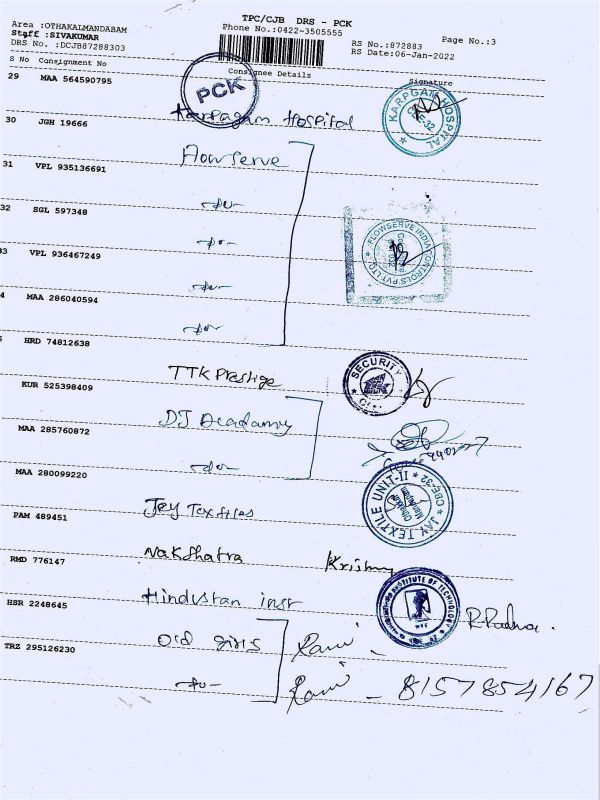 TPC/CJB DRS - PCK
Area :OTHAKALMANDABAM
Phone No.:0422-3505555
Page No.:3
Staff :SIVAKUMAR
RS No.:872883
DRS No. :DCJB87288303
RS Date:06-Jan-2022
S No Consignment No
Consignee Details
Signature
29 MAA 564590795
PCK
Karpagam Hospital
KARPGAM HOSPITAL
30 JGH 19666
Flowserve
31 VPL 935136691
-do-
32 SGL 597348
-do-
FLOWSERVE INDIA CONTROLS PVT. LTD.
33 VPL 936467249
-do-
4 MAA 286040594
-do-
HRD 74812638
TTK Prestige
SECURITY
KUR 525398409
DJ Academy
MAA 285760872
-do-
MAA 280099220
Jay Textiles
JAY TEXTILE UNIT-II CBE-32
PAM 489451
Nakshatra Krishna
RMD 776147
Hindustan inst
INSTITUTE OF TECHNOLOGY
R.Padma.
HSR 2248645
Old girls Rani
TRZ 295126230
-do- Rani - 8157854167